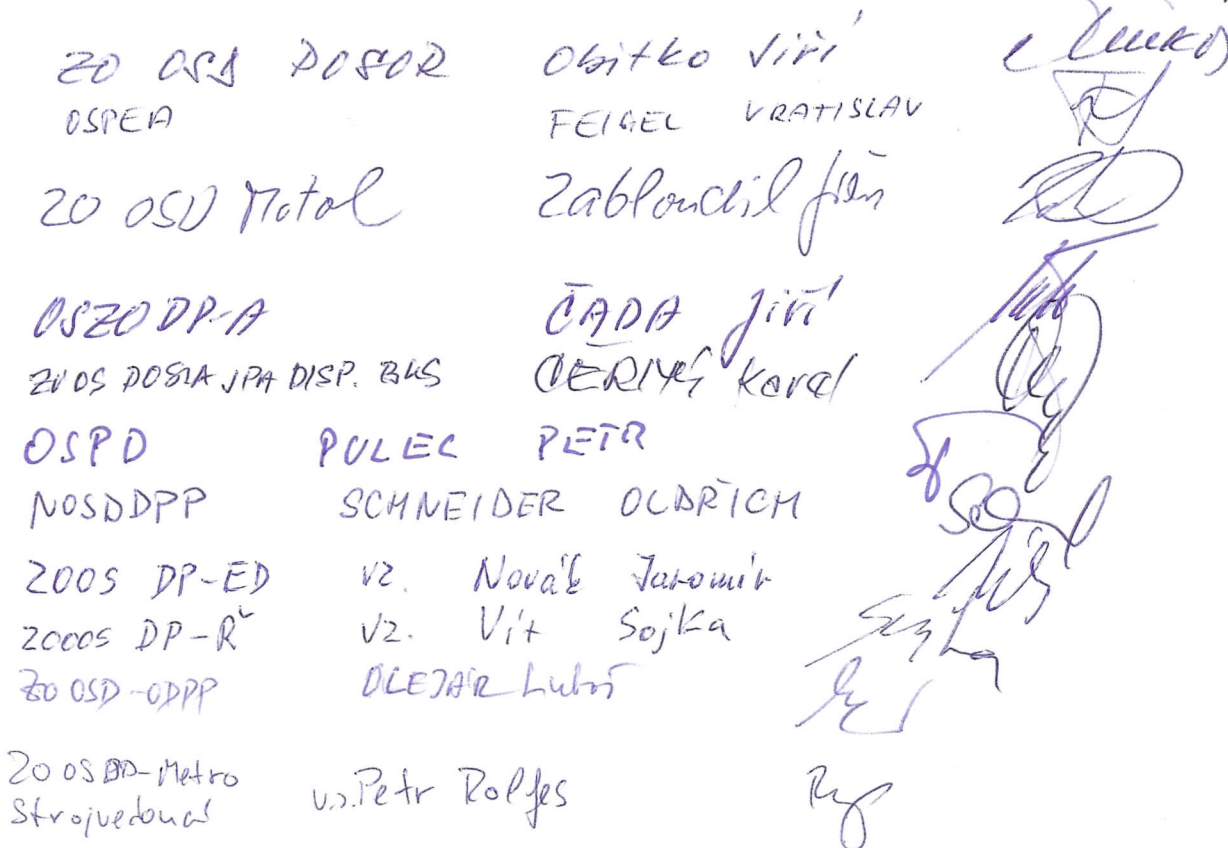 ZO OSD DOSOR Obitko Jiří
OSPEA FEIGEL VRATISLAV
ZO OSD Motol Zabloudil Jiří
OSZO DP-A ČADA Jiří
DISP. BUS ČERNÝ Karel
OSPD PULEC PETR
NOSDDPP SCHNEIDER OLDŘICH
ZOOS DP-ED vz. Novák Jaromír
ZOOOS DP-Ř vz. Vít Sojka
ZO OSD-ODPP OLEJÁR Luboš
ZO OSDD-Metro
Strojvedoucí v.z. Petr Rolfes